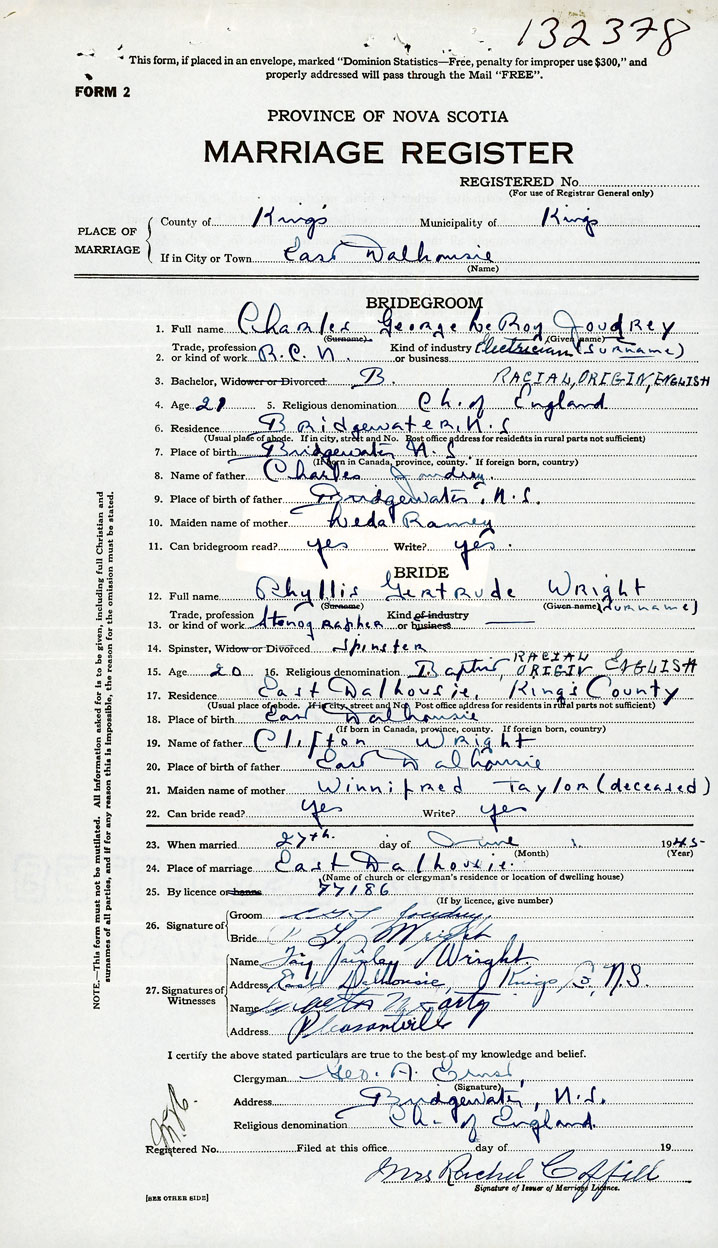 132378
This form, if placed in an envelope, marked "Dominion Statistics—Free, penalty for improper use $300," and
properly addressed will pass through the Mail "FREE".
FORM 2
PROVINCE OF NOVA SCOTIA
MARRIAGE REGISTER
REGISTERED No.
(For use of Registrar General only)
PLACE OF MARRIAGE
County of King's Municipality of Kings
If in City or Town East Dalhousie
(Name)
BRIDEGROOM
1. Full name Charles George LeRoy Joudrey
(Surname) (Given name) (Surname)
2. Trade, profession or kind of work R.C.N. Kind of industry or business Electrician
3. Bachelor, Widower or Divorced B. RACIAL, ORIGIN, ENGLISH
4. Age 21 5. Religious denomination Ch. of England
6. Residence Bridgewater, N.S
(Usual place of abode. If in city, street and No. Post office address for residents in rural parts not sufficient)
7. Place of birth Bridgewater N.S
(If born in Canada, province, county. If foreign born, country)
8. Name of father Charles Joudrey.
9. Place of birth of father Bridgewater, N.S.
10. Maiden name of mother Leda Ramey
11. Can bridegroom read? yes Write? yes.
BRIDE
12. Full name Phyllis Gertrude Wright
(Surname) (Given name) (Surname)
13. Trade, profession or kind of work Stenographer Kind of industry or business
14. Spinster, Widow or Divorced Spinster
15. Age 20 16. Religious denomination Baptist RACIAL ORIGIN ENGLISH
17. Residence East Dalhousie, King's County
(Usual place of abode. If in city, street and No. Post office address for residents in rural parts not sufficient)
18. Place of birth East Dalhousie
(If born in Canada, province, county. If foreign born, country)
19. Name of father Clifton Wright
20. Place of birth of father East Dalhousie
21. Maiden name of mother Winnifred Taylor (deceased)
22. Can bride read? yes Write? yes
23. When married 27th. day of June 1945
(Month) (Year)
24. Place of marriage East Dalhousie.
(Name of church or clergyman's residence or location of dwelling house)
25. By licence or banns 77186
(If by licence, give number)
26. Signature of
Groom Joudrey
Bride P G Wright
27. Signatures of Witnesses
Name Wright
Address East Dalhousie, Kings Co, N.S.
Name
Address Pleasantville
I certify the above stated particulars are true to the best of my knowledge and belief.
Clergyman Geo. A. Ernst
(Signature)
Address Bridgewater, N.S.
Religious denomination Ch. of England.
Registered No. Filed at this office day of 19
Mrs Rachel Coffill
Signature of Issuer of Marriage Licence.
[SEE OTHER SIDE]
NOTE.—This form must not be mutilated. All information asked for is to be given, including full Christian and
surnames of all parties, and if for any reason this is impossible, the reason for the omission must be stated.